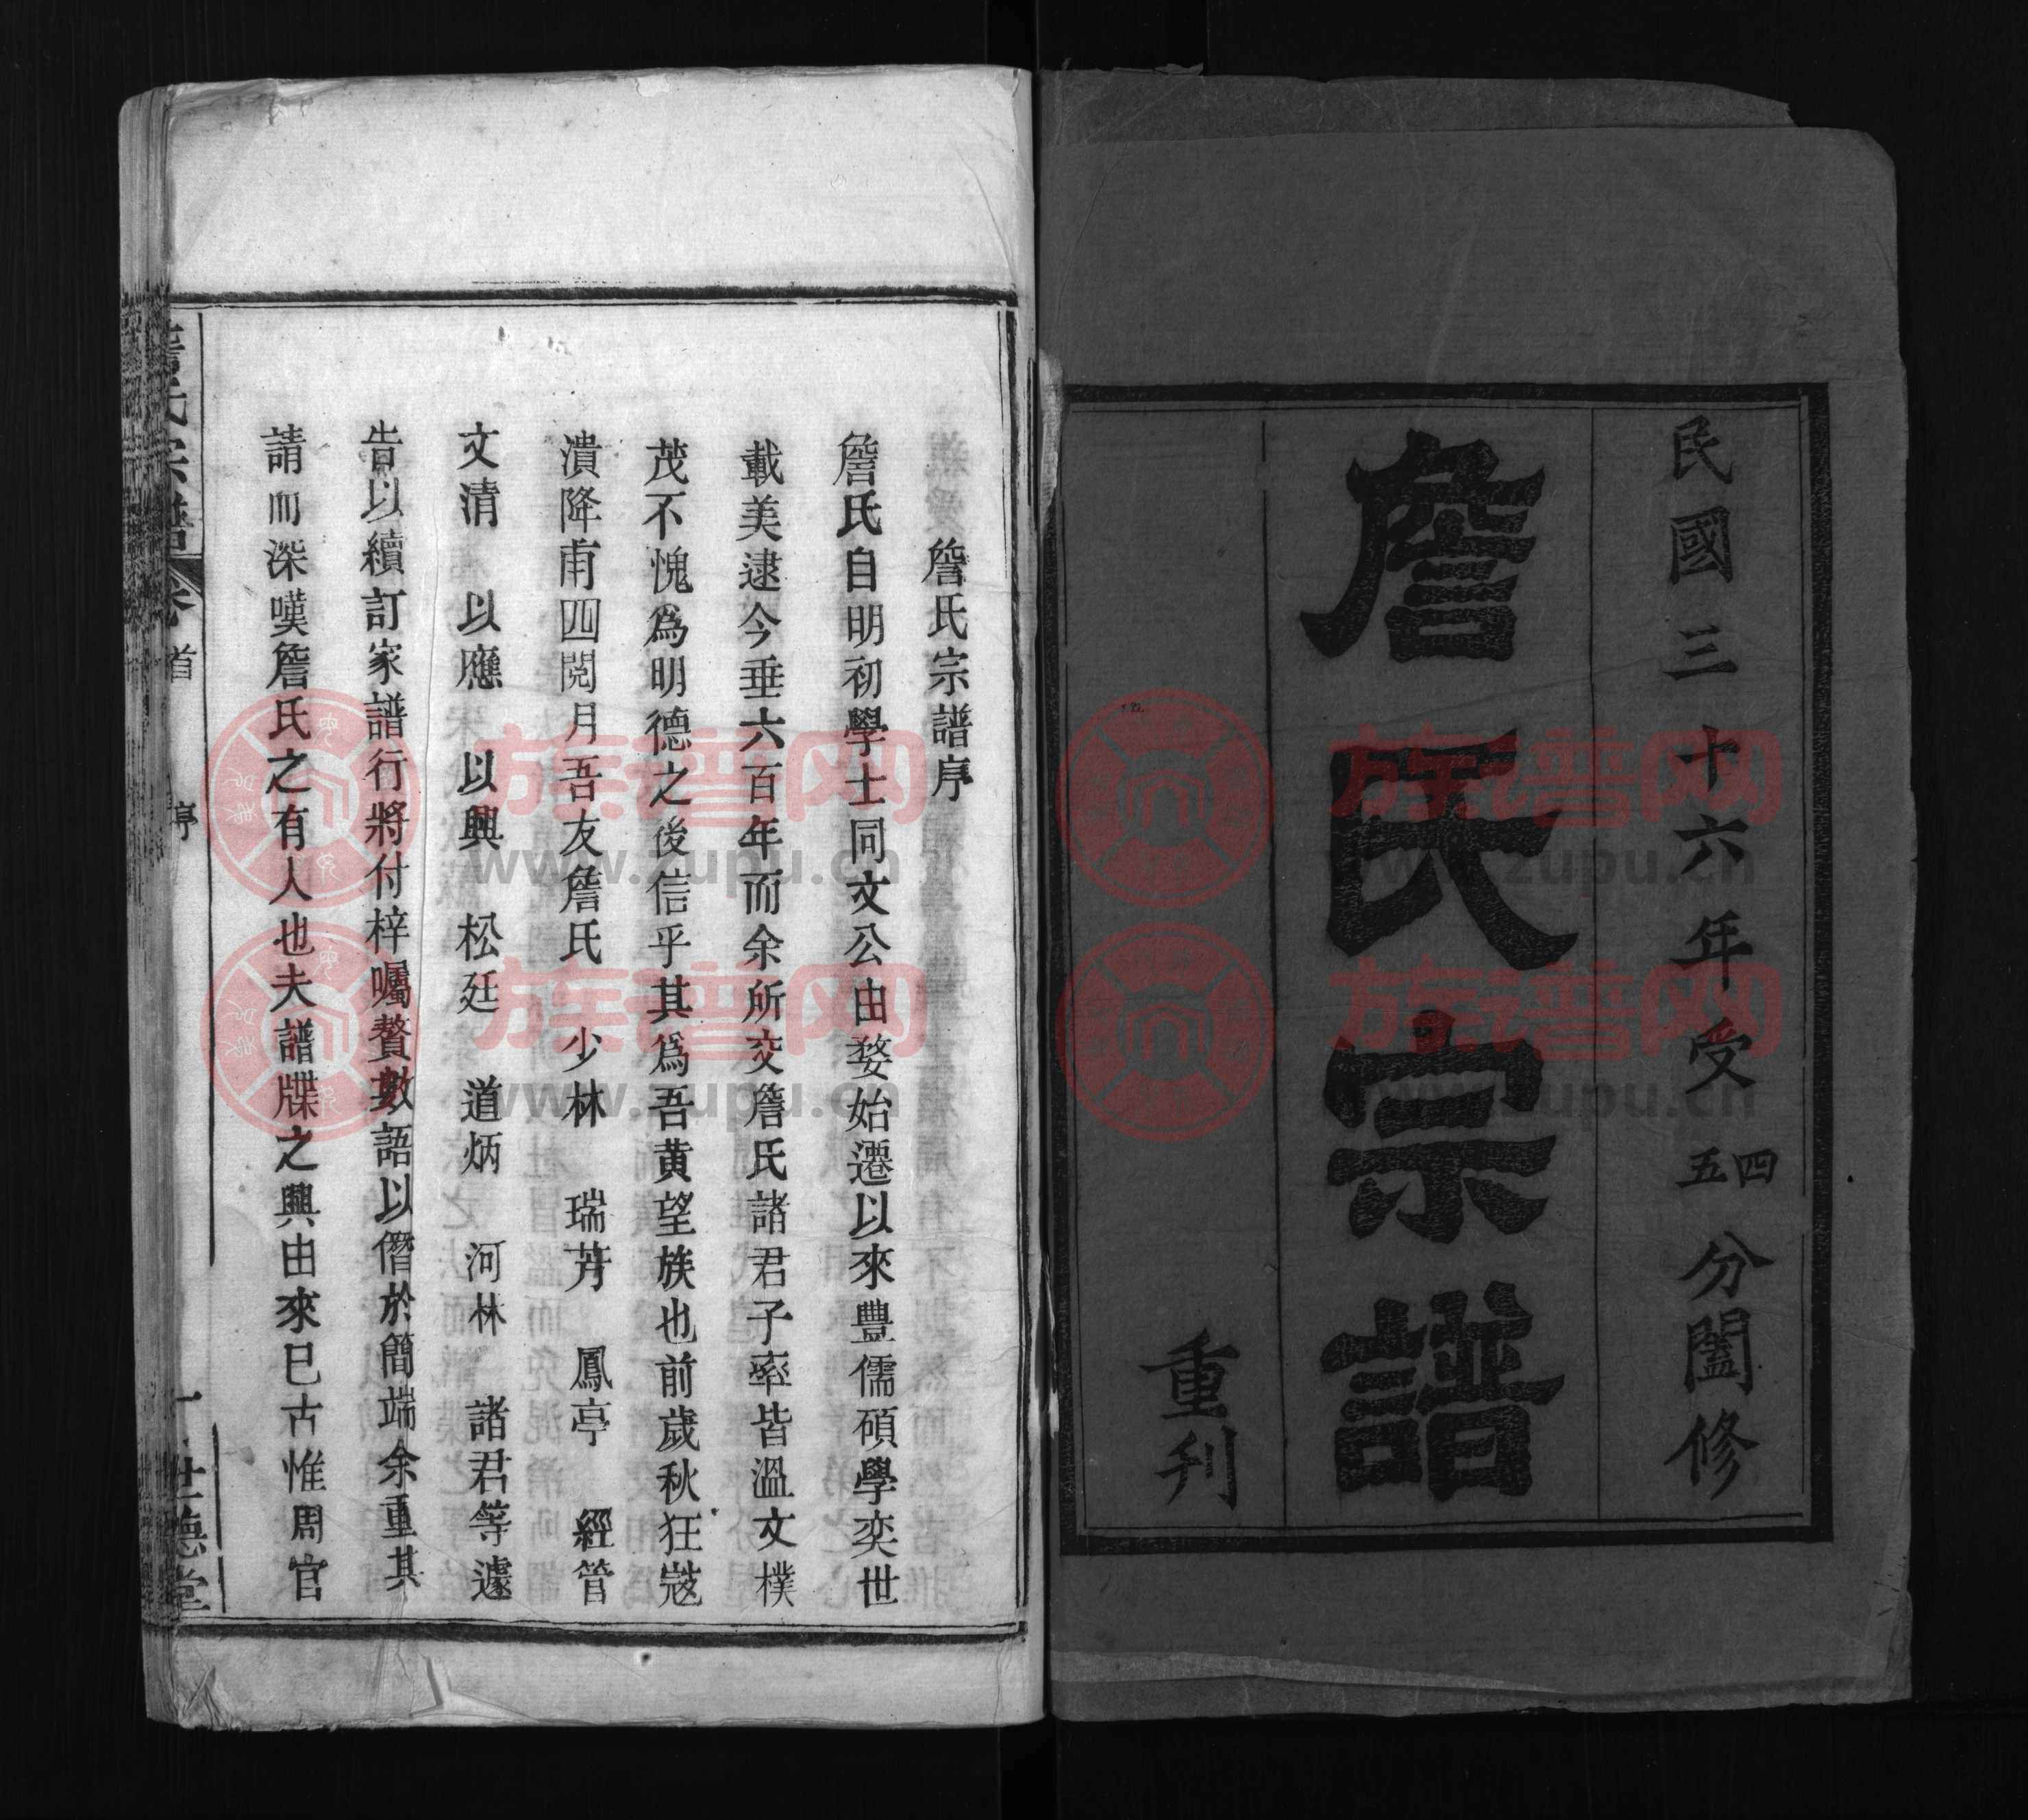 民國三十六年受四五分闔修
詹氏宗譜
重刊
詹氏宗譜序
詹氏自明初學士同文公由婺始遷以來豐儒碩學奕世
載美逮今垂六百年而余所交詹氏諸君子率皆溫文樸
茂不愧爲明德之後信乎其爲吾黄望族也前歲秋狂寇
潰降甫四閱月吾友詹氏 少林 瑞芹 鳳亭 經管
文清 以應 以興 松廷 道炳 河林 諸君等遽
告以續訂家譜行將付梓囑贅數語以僭於簡端余重其
請而深嘆詹氏之有人也夫譜牒之興由來巳古惟周官
詹氏宗譜 卷首 序 一 世德堂
族谱网
www.zupu.cn
族谱网
www.zupu.cn
族谱网
www.zupu.cn
族谱网
www.zupu.cn